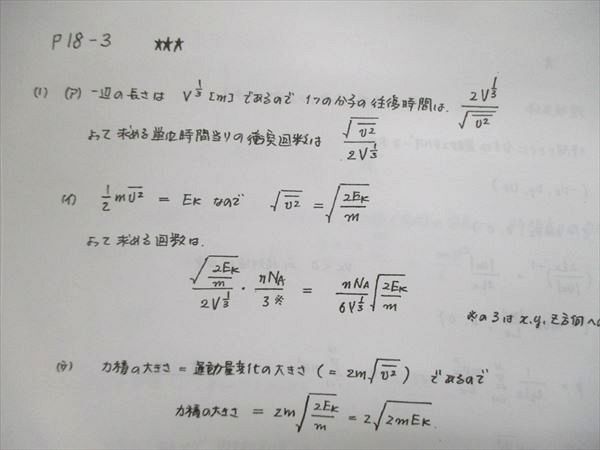 P18-3 ★★★
(1) (ア) 一辺の長さは V^{1/3} [m] であるので 1つの分子の往復時間は、 2V^{1/3}/√(\overline{v²})
よって求める単位時間当りの衝突回数は √(\overline{v²})/2V^{1/3}
(イ) 1/2 m\overline{v²} = EK なので √(\overline{v²}) = √(2EK/m)
よって求める回数は、
√(2EK/m)/2V^{1/3} · nNA/3※ = nNA/6V^{1/3} √(2EK/m)
※の3はx,y,z方向への
(ウ) 力積の大きさ = 運動量変化の大きさ (= 2m√(\overline{v²})) であるので
力積の大きさ = 2m√(2EK/m) = 2√(2mEK).